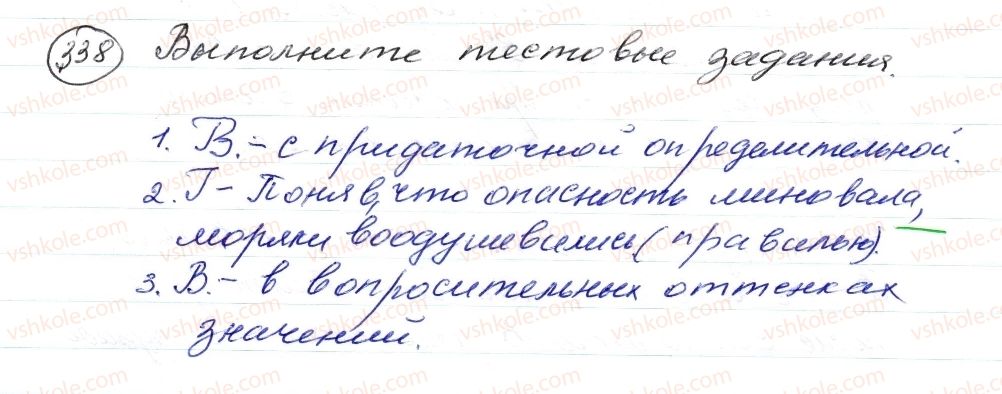 338 Выполните тестовые задания.
1. В. – с придаточной определительной.
2. Г – Поняв, что опасность миновала,
моряки воодушевились (правильно).
3. В. – в вопросительных оттенках
значений.